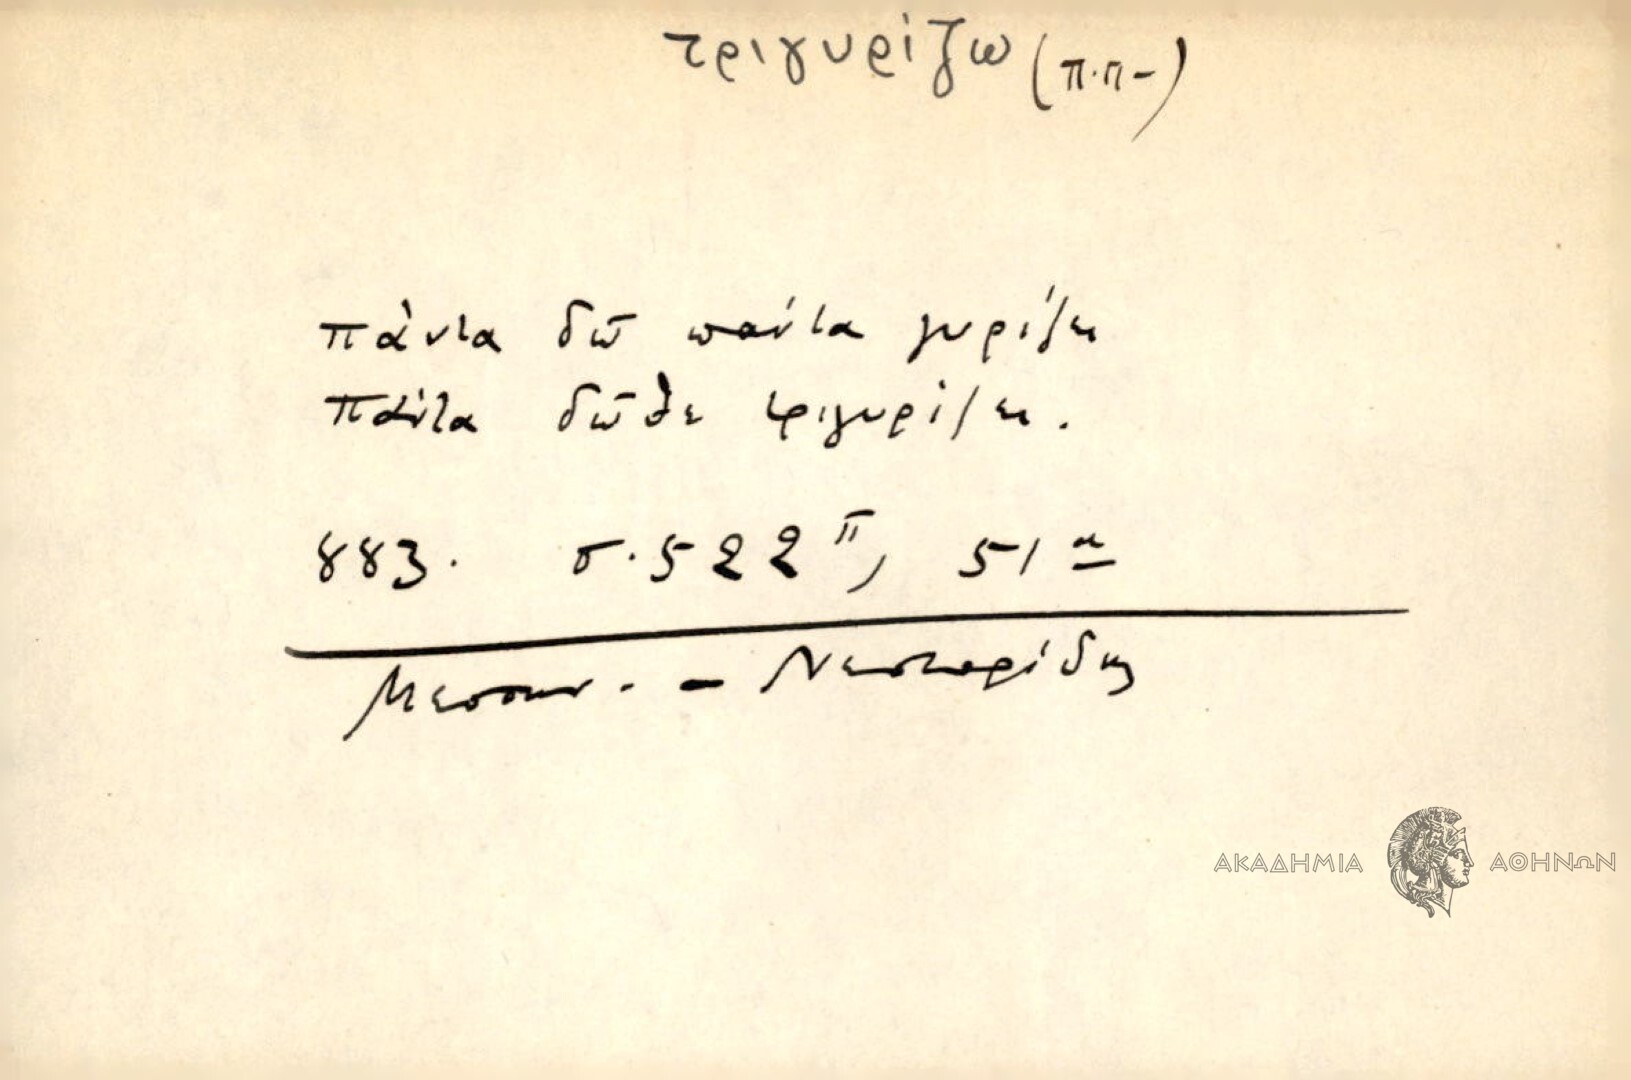 τριγυρίζω (π.π-)
πάντα δῶ πάντα γυρίζει
πάντα δῶθε τριγυρίζει.
883. σ. 522π, 51α
Μεσσην. - Νεστορίδης
ΑΚΑΔΗΜΙΑ ΑΘΗΝΩΝ